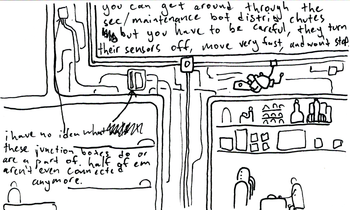 you can get around through the
sec/maintenance bot distrib chutes
but you have to be careful, they turn
their sensors off, move very fast, and wont stop
i have no idea what
these junction boxes do or
are a part of. half of em
aren't even connected
anymore.